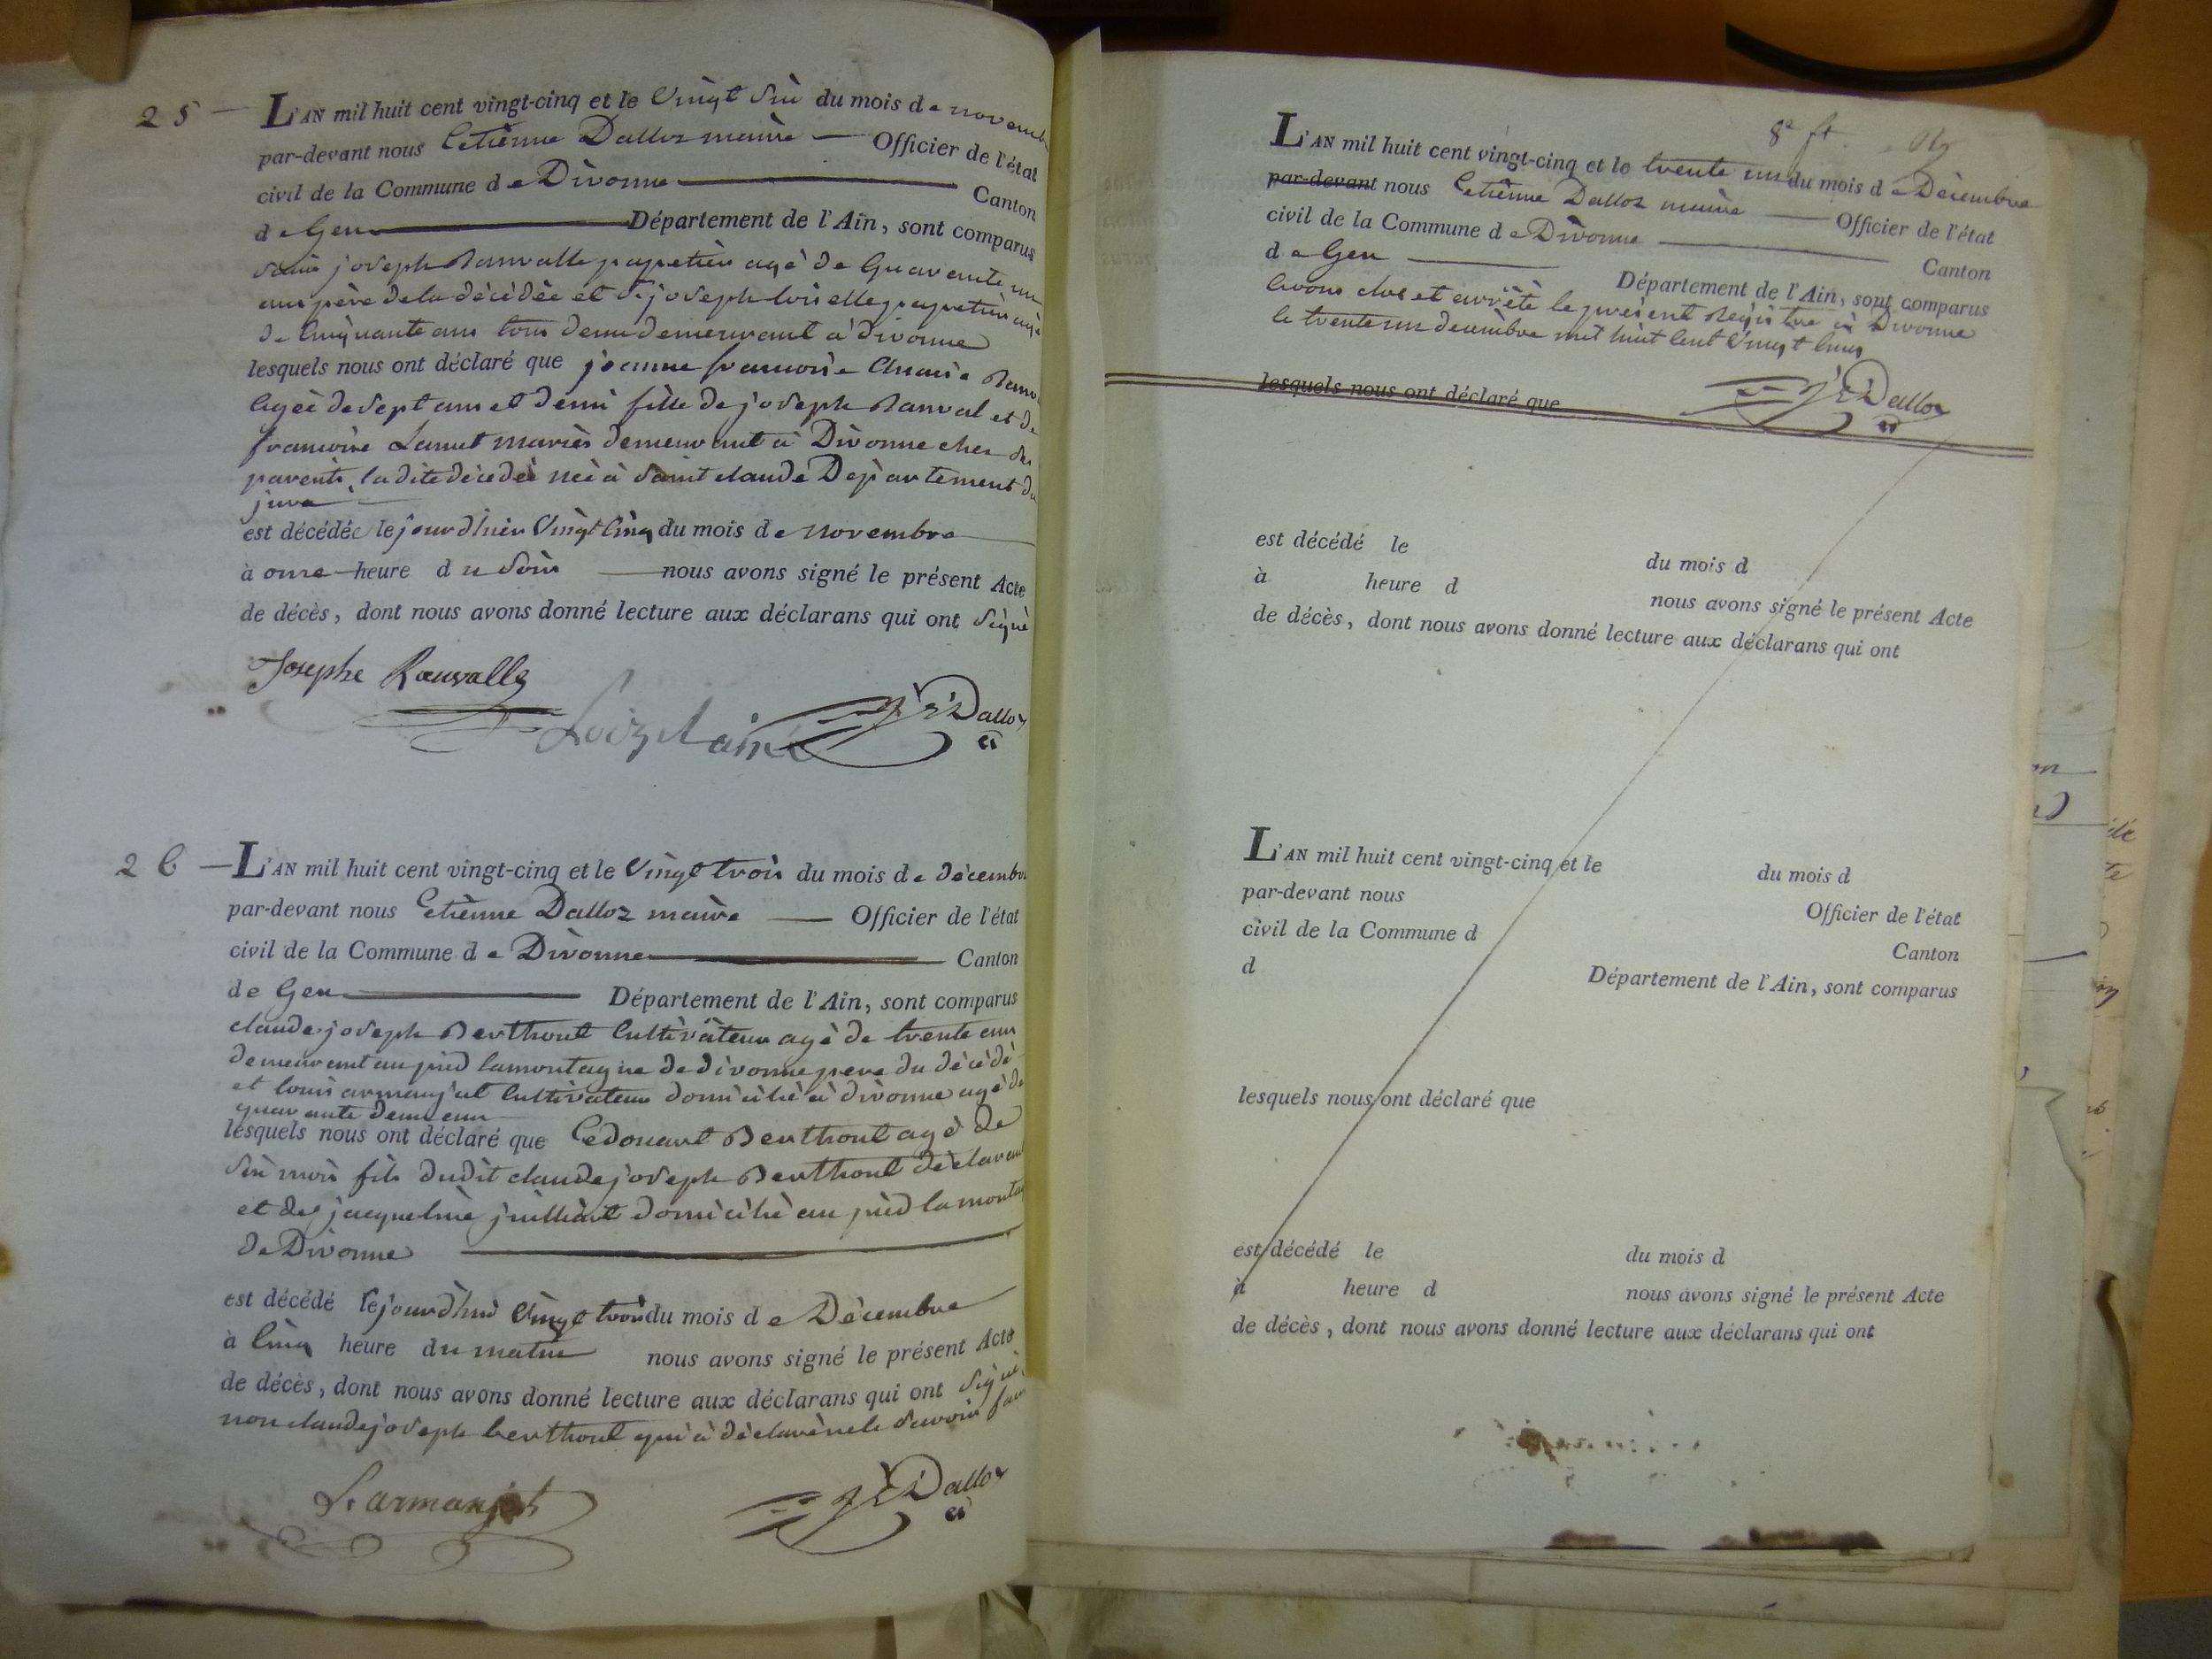 25 — L'AN mil huit cent vingt-cinq et le vingt six du mois de novemb
par-devant nous Etiènne Dalloz maire — Officier de l'état
civil de la Commune de Divonne Canton
de Gex Département de l'Ain, sont comparus
joseph papetièr agé de quarante un
ans père de la décédée et joseph papetièr agé
de Cinquante ans tous deux demeurant à divonne
lesquels nous ont déclaré que jeanne francoise
agée de sept ans et demi fille de joseph Ranval et de
francoise Lamet mariés demeurant à Divonne chez
parents, la dite décédée née à Saint claude Département du
jura
est décédée le jour d'hièr vingt cinq du mois de novembre
à onze heure du soir nous avons signé le présent Acte
de décès, dont nous avons donné lecture aux déclarans qui ont signé
Josephe
Dalloz
26 — L'AN mil huit cent vingt-cinq et le vingt trois du mois de décembre
par-devant nous Etiènne Dalloz maire — Officier de l'état
civil de la Commune de Divonne Canton
de Gex Département de l'Ain, sont comparus
claude joseph Berthout Cultivateur agé de trente ans
demeurant au pied la montagne de divonne pere du décédé
et louis armanjat Cultivateur domicilié à divonne agé de
quarante deux ans
lesquels nous ont déclaré que Edouart Berthout agé de
six mois fils dudit claude joseph Berthout déclarant
et de jacqueline domicilié au pied la monta
de Divonne
est décédé le jourd'hui vingt trois du mois de Décembre
à cinq heure du matin nous avons signé le présent Acte
de décès, dont nous avons donné lecture aux déclarans qui ont signé
non claude joseph berthout qui à déclaré ne le savoir
Dalloz
L'AN mil huit cent vingt-cinq et le trente un du mois de Décembre
par-devant nous Etiènne Dalloz maire — Officier de l'état
civil de la Commune de Divonne Canton
de Gex Département de l'Ain, sont comparus
avons clos et arrêté le présent Régistre à Divonne
le trente un decèmbre mil huit cent vingt cinq
lesquels nous ont déclaré que
Dalloz
est décédé le du mois d
à heure d nous avons signé le présent Acte
de décès, dont nous avons donné lecture aux déclarans qui ont
L'AN mil huit cent vingt-cinq et le du mois d
par-devant nous Officier de l'état
civil de la Commune d Canton
d Département de l'Ain, sont comparus
lesquels nous ont déclaré que
est décédé le du mois d
à heure d nous avons signé le présent Acte
de décès, dont nous avons donné lecture aux déclarans qui ont